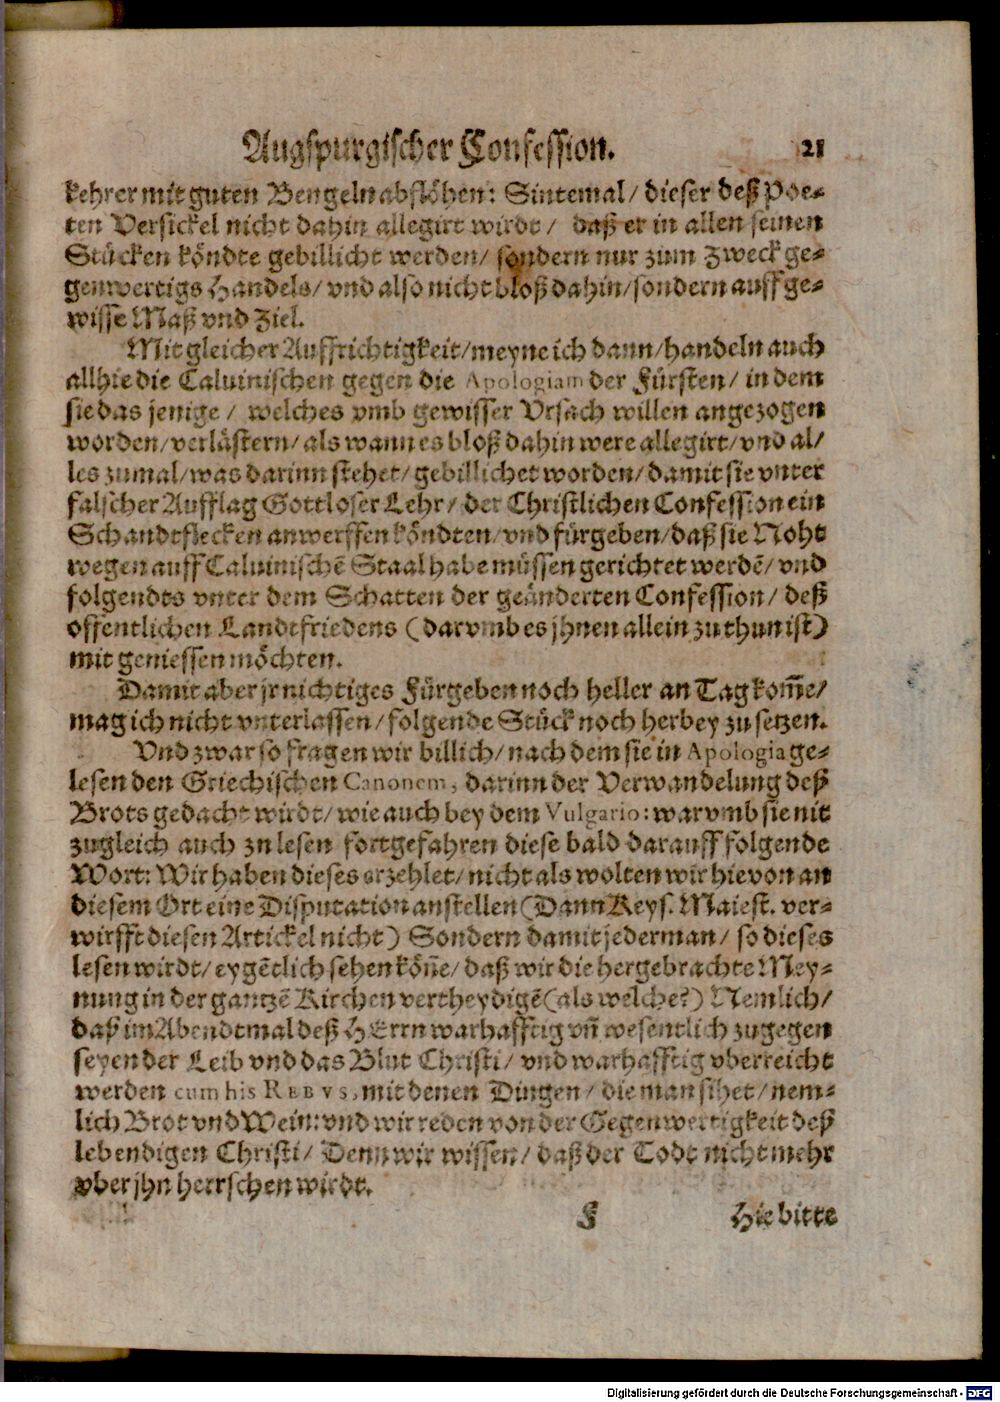 Augspurgischer Confession. 21
kehrer mit guten Bengeln abflöhen: Sintemal/ dieser deß Poe-
ten Versickel nicht dahin allegirt wirdt/ daß er in allen seinen
Stücken köndte gebillicht werden/ sondern nur zum Zweck ge-
genwertigs Handels/ vnd also nicht bloß dahin/ sondern auff ge-
wisse Maß vnd Ziel.
Mit gleicher Auffrichtigkeit/ meyne ich dann/ handeln auch
allhie die Caluinischen gegen die Apologiam der Fürsten/ in dem
sie das jenige/ welches vmb gewisser Vrsach willen angezogen
worden/ verlästern/ als wann es bloß dahin were allegirt/ vnd al/
les zumal/ was darinn stehet/ gebillichet worden/ damit sie vnter
falscher Aufflag Gottloser Lehr/ der Christlichen Confession ein
Schandtflecken anwerffen köndten/ vnd fürgeben/ daß sie Noht
wegen auff Caluinischē Staal habe müssen gerichtet werdē/ vnd
folgendts vnter dem Schatten der geänderten Confession/ deß
offentlichen Landtfriedens (darvmb es jhnen allein zu thun ist)
mit geniessen möchten.
Damit aber jr nichtiges Fürgeben noch heller an Tag kom̄e/
mag ich nicht vnterlassen/ folgende Stück noch herbey zu setzen.
Vnd zwar so fragen wir billich/ nach dem sie in Apologia ge-
lesen den Griechischen Canonem, darinn der Verwandelung deß
Brots gedacht wirdt/ wie auch bey dem Vulgario: warvmb sie nit
zugleich auch zu lesen fortgefahren diese bald darauff folgende
Wort: Wir haben dieses erzehlet/ nicht als wolten wir hievon an
diesem Ort eine Disputation anstellen (Dann Keys. Maiest. ver-
wirfft diesen Artickel nicht) Sondern damit jederman/ so dieses
lesen wirdt/ eygētlich sehen kön̄e/ daß wir die hergebrachte Mey-
nung in der gantzē Kirchen vertheydigē (als welche?) Nemlich/
daß im Abendtmal deß HErrn warhafftig vn̄ wesentlich zugegen
seyen der Leib vnd das Blut Christi/ vnd warhafftig vberreicht
werden cum his REBVS, mit denen Dingen/ die man sihet/ nem-
lich Brot vnd Wein: vnd wir reden von der Gegenwertigkeit deß
lebendigen Christi/ Denn wir wissen/ daß der Todt nicht mehr
vber jhn herrschen wirdt.
F Hie bitte
Digitalisierung gefördert durch die Deutsche Forschungsgemeinschaft - DFG